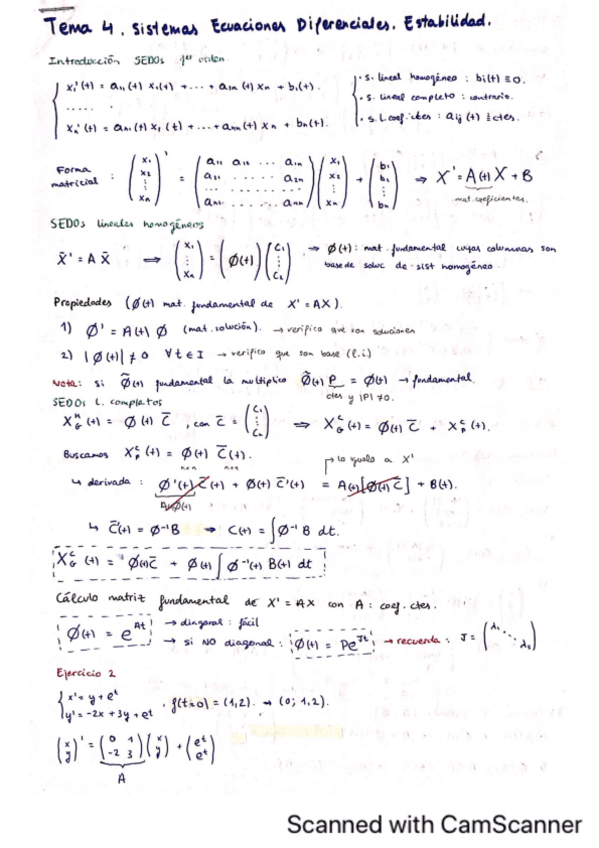 Tema 4. Sistemas Ecuaciones Diferenciales. Estabilidad.
Introducción SEDOs 1er orden.
x₁'(t) = a₁₁(t) x₁(t) + ... + a₁ₙ(t) xₙ + b₁(t).
.....
xₙ'(t) = aₙ₁(t) x₁(t) + ... + aₙₙ(t) xₙ + bₙ(t).
· s. lineal homogéneo : bi(t) ≡ 0.
· s. lineal completo : contrario.
· s. L. coef. ctes : aij(t) ≡ ctes.
Forma matricial : (x₁ x₂ ⋮ xₙ)' = (a₁₁ a₁₂ ... a₁ₙ ; a₂₁ ... a₂ₙ ; ... ; aₙ₁ ... aₙₙ) (x₁ x₂ ⋮ xₙ) + (b₁ b₂ ⋮ bₙ) ⇒ X' = A(t) X + B
mat. coeficientes.
SEDOs lineales homogéneos
X̄' = A X̄ ⟹ (x₁ ⋮ xₙ) = (Ø(t)) (C₁ ⋮ C₂) → Ø(t) : mat. fundamental cuyas columnas son
base de soluc de sist homogéneo.
Propiedades (Ø(t) mat. fundamental de X' = AX).
1) Ø' = A(t) Ø (mat. solución). → verifico que son soluciones
2) |Ø(t)| ≠ 0 ∀t ∈ I → verifico que son base (l.i)
Nota: si Ø̃(t) fundamental la multiplico Ø̃(t) P = Ø(t) → fundamental.
ctes y |P| ≠ 0.
SEDOs L. completos
X_G^H(t) = Ø(t) C̄ , con C̄ = (C₁ ⋮ Cₙ) ⟹ X_G^C(t) = Ø(t) C̄ + X_P^C(t).
Buscamos X_P^C(t) = Ø(t) C̄(t).
nxn nx1
lo igualo a X'
↳ derivada : Ø'(t) C̄(t) + Ø(t) C̄'(t) = A(t)[Ø(t) C̄] + B(t).
A(t)Ø(t)
↳ C̄'(t) = Ø⁻¹B → C(t) = ∫Ø⁻¹ B dt.
X_G^C(t) = Ø(t)C̄ + Ø(t) ∫ Ø⁻¹(t) B(t) dt
Cálculo matriz fundamental de X' = AX con A : coef. ctes.
Ø(t) = e^{At} → diagonal : fácil
→ si NO diagonal : Ø(t) = Pe^{Jt} → recuerda : J = (λ₁ ⋱ λₙ)
Ejercicio 2
x' = y + e^t
y' = -2x + 3y + e^t . f(t=0) = (1,2). → (0; 1,2).
(x y)' = (0 1 ; -2 3) (x y) + (e^t e^t)
A
Scanned with CamScanner